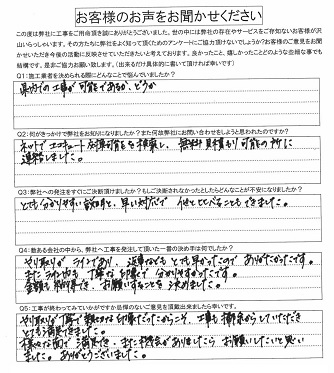 お客様のお声をお聞かせください
この度は弊社に工事をご用命頂き誠にありがとうございました。世の中には弊社の存在やサービスをご存知ないお客様が沢
山いらっしゃいます。その方たちに弊社をよく知って頂くためのアンケートにご協力頂けないでしょうか?お客様のご意見をお聞
かせいただき今後の活動に反映させていただきたいと考えております。良かったこと、嬉しかったことどのような些細な事でも
結構です。是非ご協力お願い致します。(出来るだけ具体的に書いて頂ければ幸いです)
Q1:施工業者を決められる際にどんなことで悩んでいましたか?
県内の工事が可能であるか、どうか
Q2:何がきっかけで弊社をお知りになりましたか?また何故弊社にお問い合わせをしようと思われたのですか?
ネットでエコキュート 可能 を検索し、無料見積もり可能の所に
連絡しました。
Q3:弊社への発注をすぐにご決断頂けましたか?もしご決断されなかったとしたらどんなことが不安になりましたか?
とても分かりやすい説明と、早い対応で 他と比べることもできました。
Q4:数ある会社の中から、弊社へ工事を発注して頂いた一番の決め手は何でしたか?
やり取りが ラインであり、返事などもとても早かったので ありがたかったです。
また 丁寧な印象で 分かりやすかったです。
金額も 納得でき、お願いすることを 決めました。
Q5:工事が終わってみていかがですか忌憚のないご意見を頂戴出来ましたら幸いです。
やり取りが丁寧で 印象だったからこそ、工事も していただき
とても満足できました。
様々な面で 満足でき、また機会がありましたら お願いしたいと思い
ました。ありがとうございました。